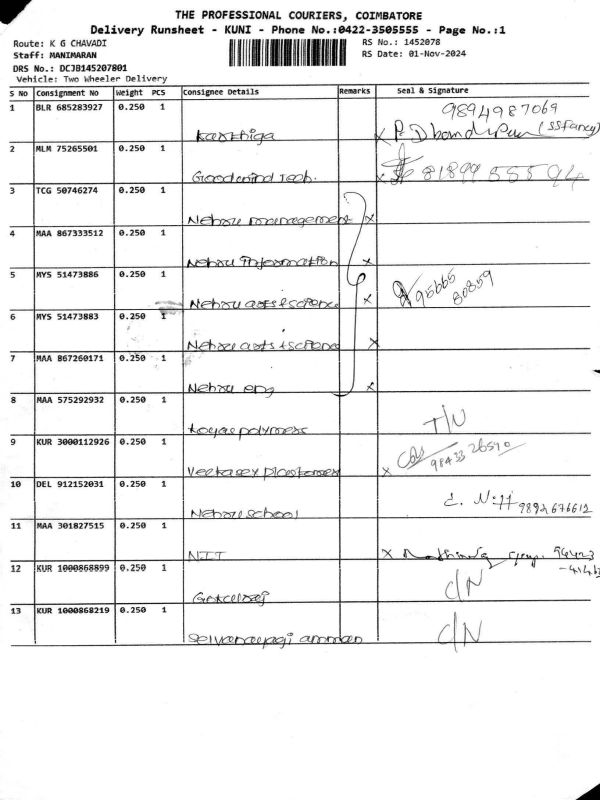 THE PROFESSIONAL COURIERS, COIMBATORE
Delivery Runsheet - KUNI - Phone No.:0422-3505555 - Page No.:1
Route: K G CHAVADI RS No.: 1452078
Staff: MANIMARAN RS Date: 01-Nov-2024
DRS No.: DCJB145207801
Vehicle: Two Wheeler Delivery
S No Consignment No Weight PCS Consignee Details Remarks Seal & Signature
1 BLR 685283927 0.250 1 9894987069
Karthiga x (SSFancy)
2 MLM 75265501 0.250 1
Goodwind Tech. x 81899 55594
3 TCG 50746274 0.250 1
Nehru management x
4 MAA 867333512 0.250 1
Nehru Information x
5 MYS 51473886 0.250 1 95665
Nehru arts & science x 80859
6 MYS 51473883 0.250 1
Nehru arts & science x
7 MAA 867260171 0.250 1
Nehru eng x
8 MAA 575292932 0.250 1
polymers T/U
9 KUR 3000112926 0.250 1
x 98433 26590
10 DEL 912152031 0.250 1
Nehru school 9892676612
11 MAA 301827515 0.250 1
NIIT x
12 KUR 1000868899 0.250 1
Gokulraj C/N
13 KUR 1000868219 0.250 1
Selvanayagi amman C/N